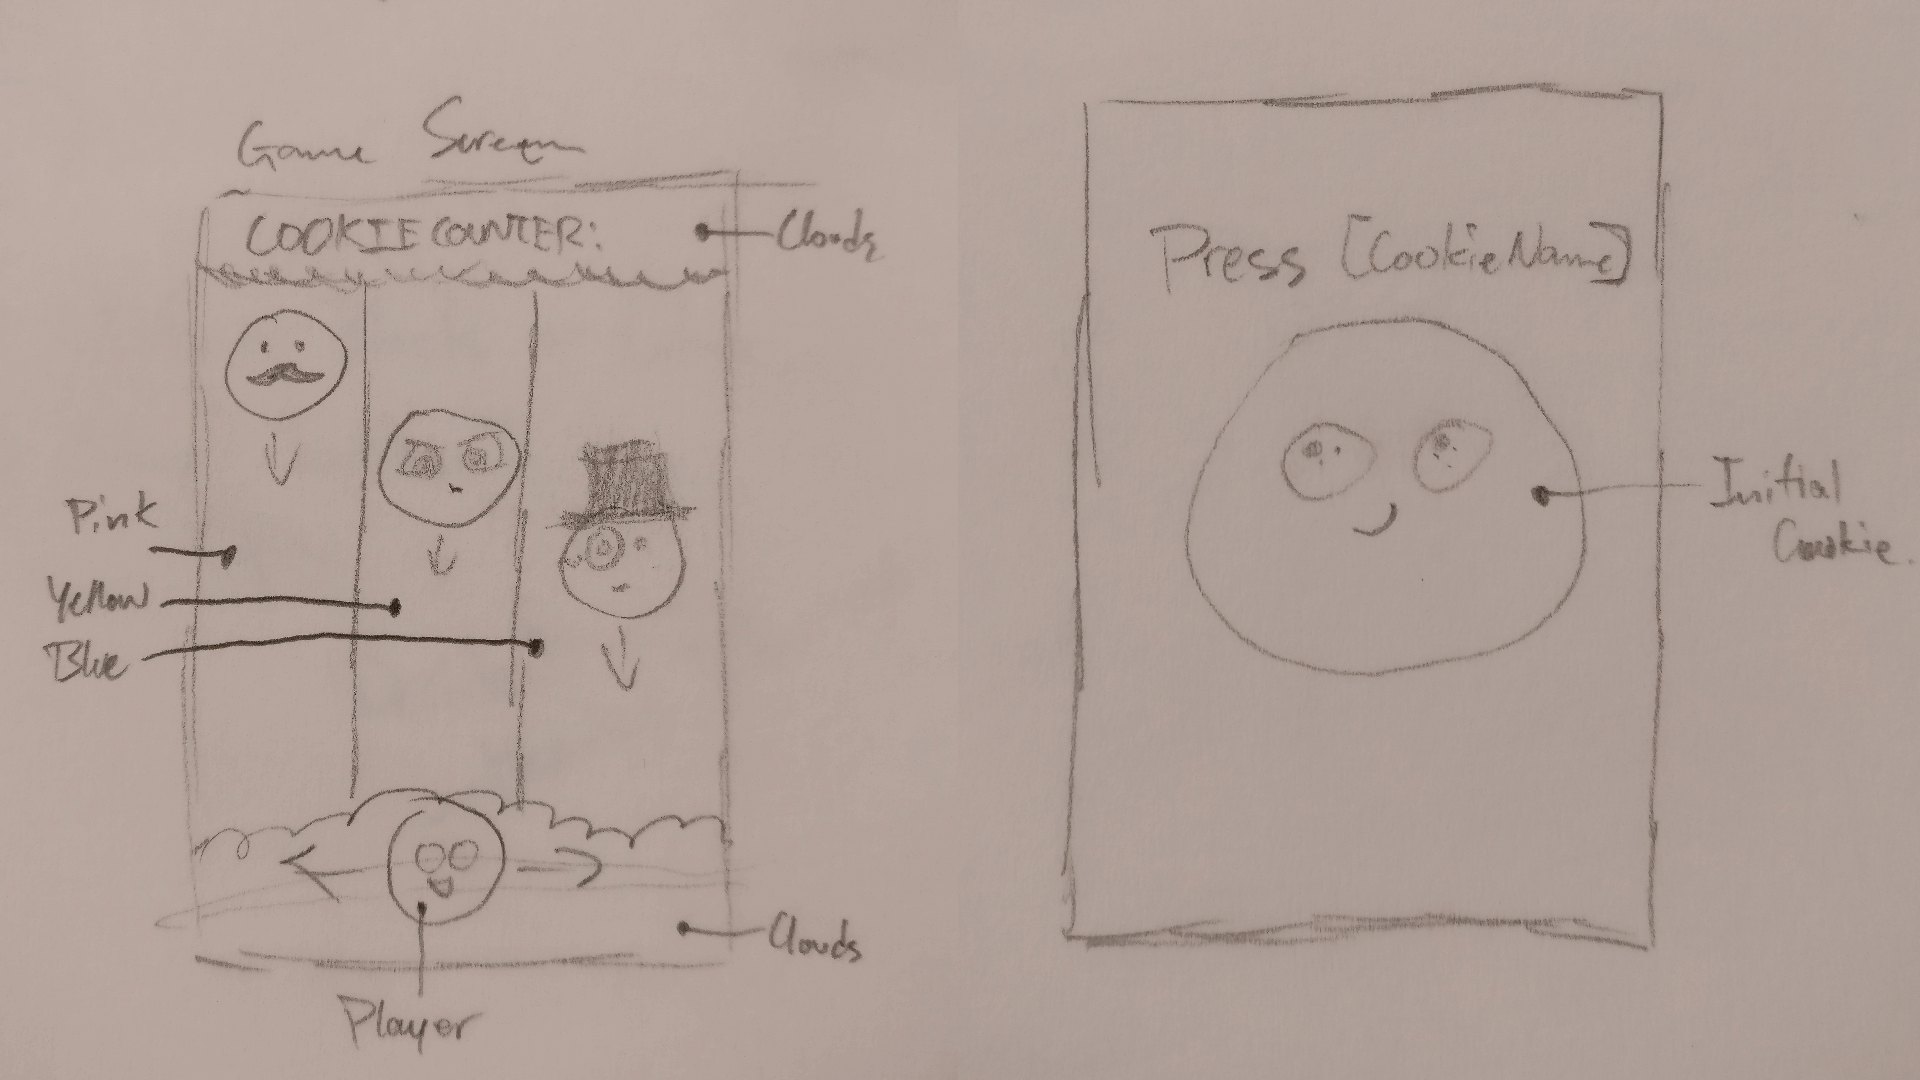 Game Screen
COOKIE COUNTER:
Clouds
Pink
Yellow
Blue
Clouds
Player
Press [CookieName]
Initial
Cookie.